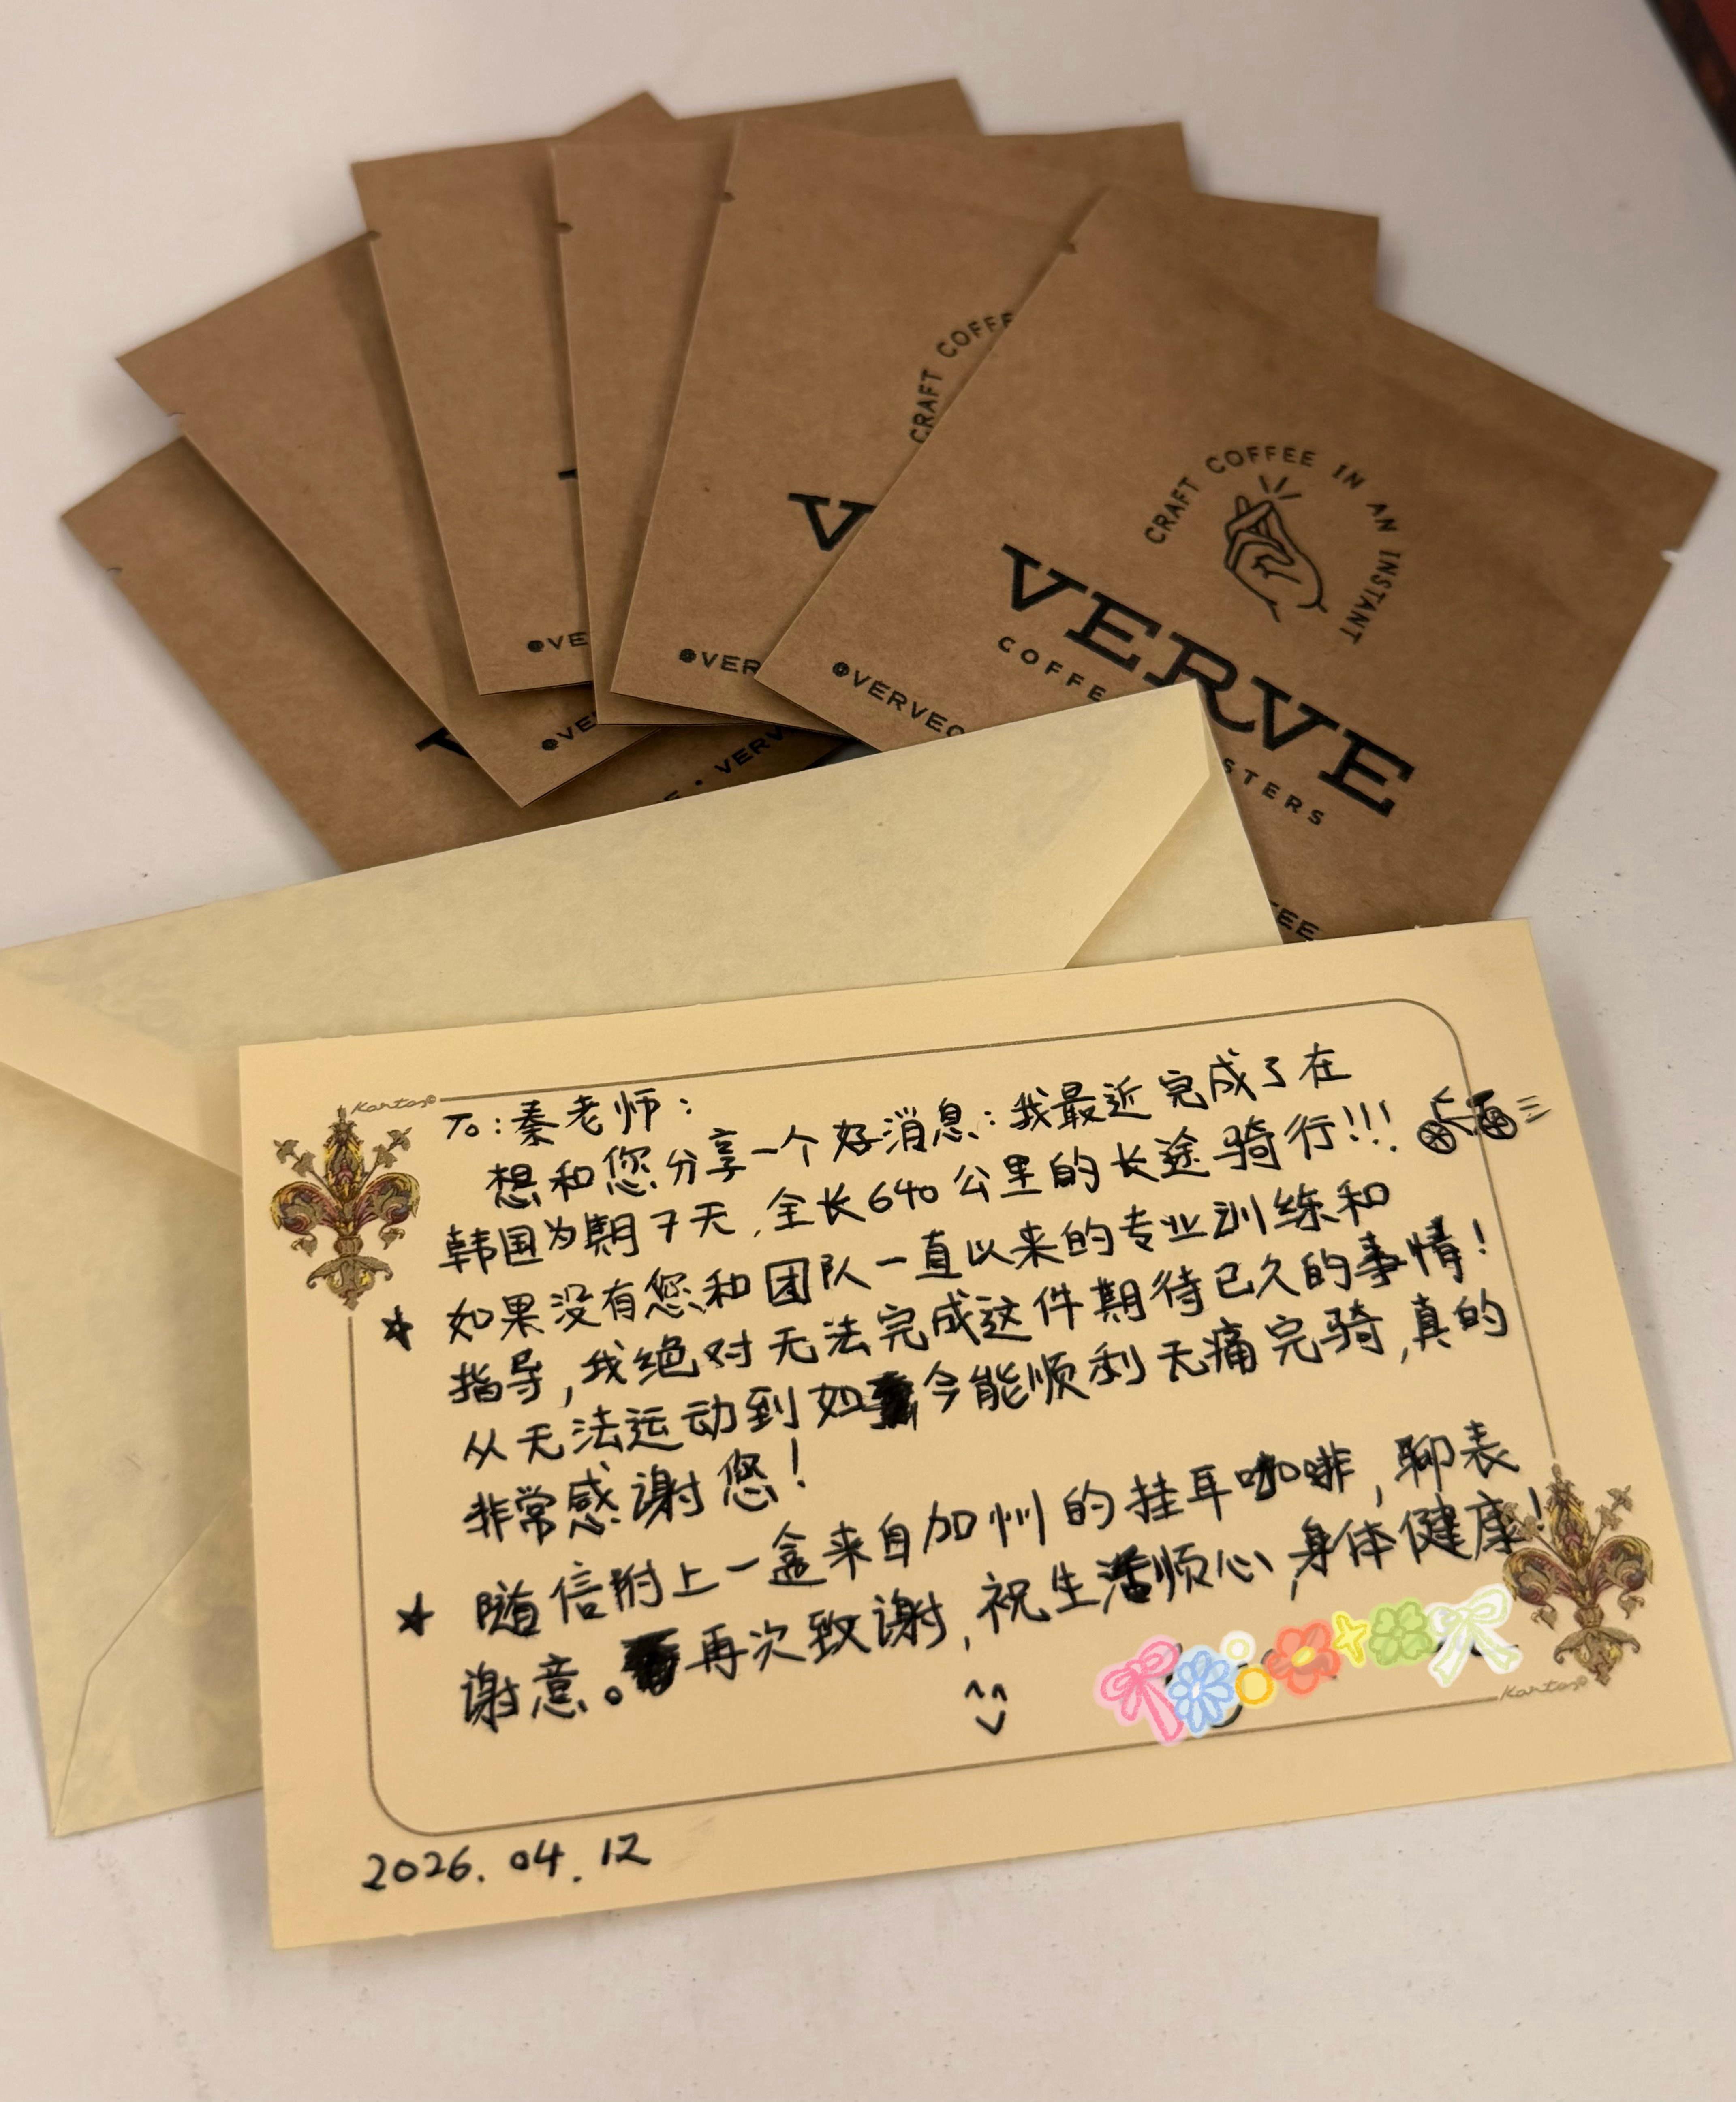 CRAFT COFFE
CRAFT COFFEE IN AN INSTANT
V
VERVE
COFFE
STERS
@VE
@VER
@VERVECO
@VE
• VERV
EE
Kartos
To:秦老师:
想和您分享一个好消息:我最近完成了在
韩国为期7天,全长640公里的长途骑行!!!
★ 如果没有您和团队一直以来的专业训练和
指导,我绝对无法完成这件期待已久的事情!
从无法运动到如今能顺利无痛完骑,真的
非常感谢您!
★ 随信附上一盒来自加州的挂耳咖啡,聊表
谢意。再次致谢,祝生活顺心,身体健康!
Kartos
2026.04.12